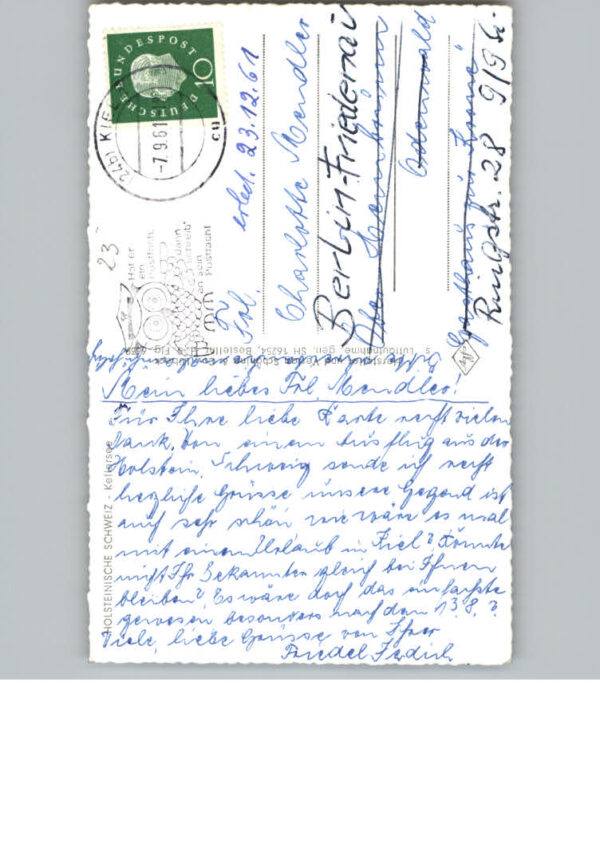 DEUTSCHE BUNDESPOST
10
(24b) KIEL
-7.9.61
cu
23
Hat er
ein Postfach,
dann
schreib'
an sein
Postfach
erled. 23.12.61
Frl.
Charlotte Mendler
Berlin-Friedenau
Odenwald
Gasthaus zur Krone
Ringstr. 28 9/9 Li.
Luftaufnahme, gen. SH 16254, Bestellnr.
HOLSTEINISCHE SCHWEIZ - Kellersee
Mein liebes Frl. Mendler!
Für Ihre liebe Karte recht vielen
Dank. Von einem Ausflug aus der
Holstein. Schweiz sende ich recht
herzliche Grüsse unsere Gegend ist
auch sehr schön wie wäre es mal
mit einem Urlaub in Kiel? Könnte
nicht Ihr Bekannter gleich bei Ihnen
bleiben? Es wäre doch das einfachste
gewesen besonders nach dem 13.8.?
Viele, liebe Grüsse von Ihrer
Friedel